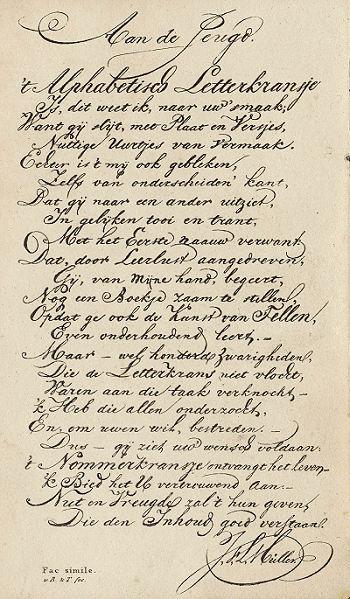 Aan de Jeugd.
't Alphabetisch Letterkransje
Is, dit weet ik, naar uw smaak;
Want gij slijt, met Plaat en Versjes,
Nuttige Uurtjes van Vermaak.
Eerer is't mij ook gebleken,
Zelfs van onderscheiden kant,
Dat gij naar een ander uitziet,
In gelijken tooi en trant,
Met het Eerste naauw verwant
Dat, door Leerlust aangedreven,
Gij, van mijne hand, begeert,
Nog een Boekje zaam te stellen,
Opdat ge ook de Kunst van Tellen,
Even onderhoudend leert. –
Maar – wel honderd zwarigheden,
Die de Letterkrans niet vlocht,
Waren aan die taak verknocht –
'k Heb die allen onderzocht,
En, om uwen wil, bestreden. –
Dus – gij ziet uw wensch voldaan:
't Nommerkransje ontvangt het leven
'k Bied het U vertrouwend aan:–
Nut en Vreugde zal 't hun geven,
Die den Inhoud goed verstaan.
Müller
Fac simile.